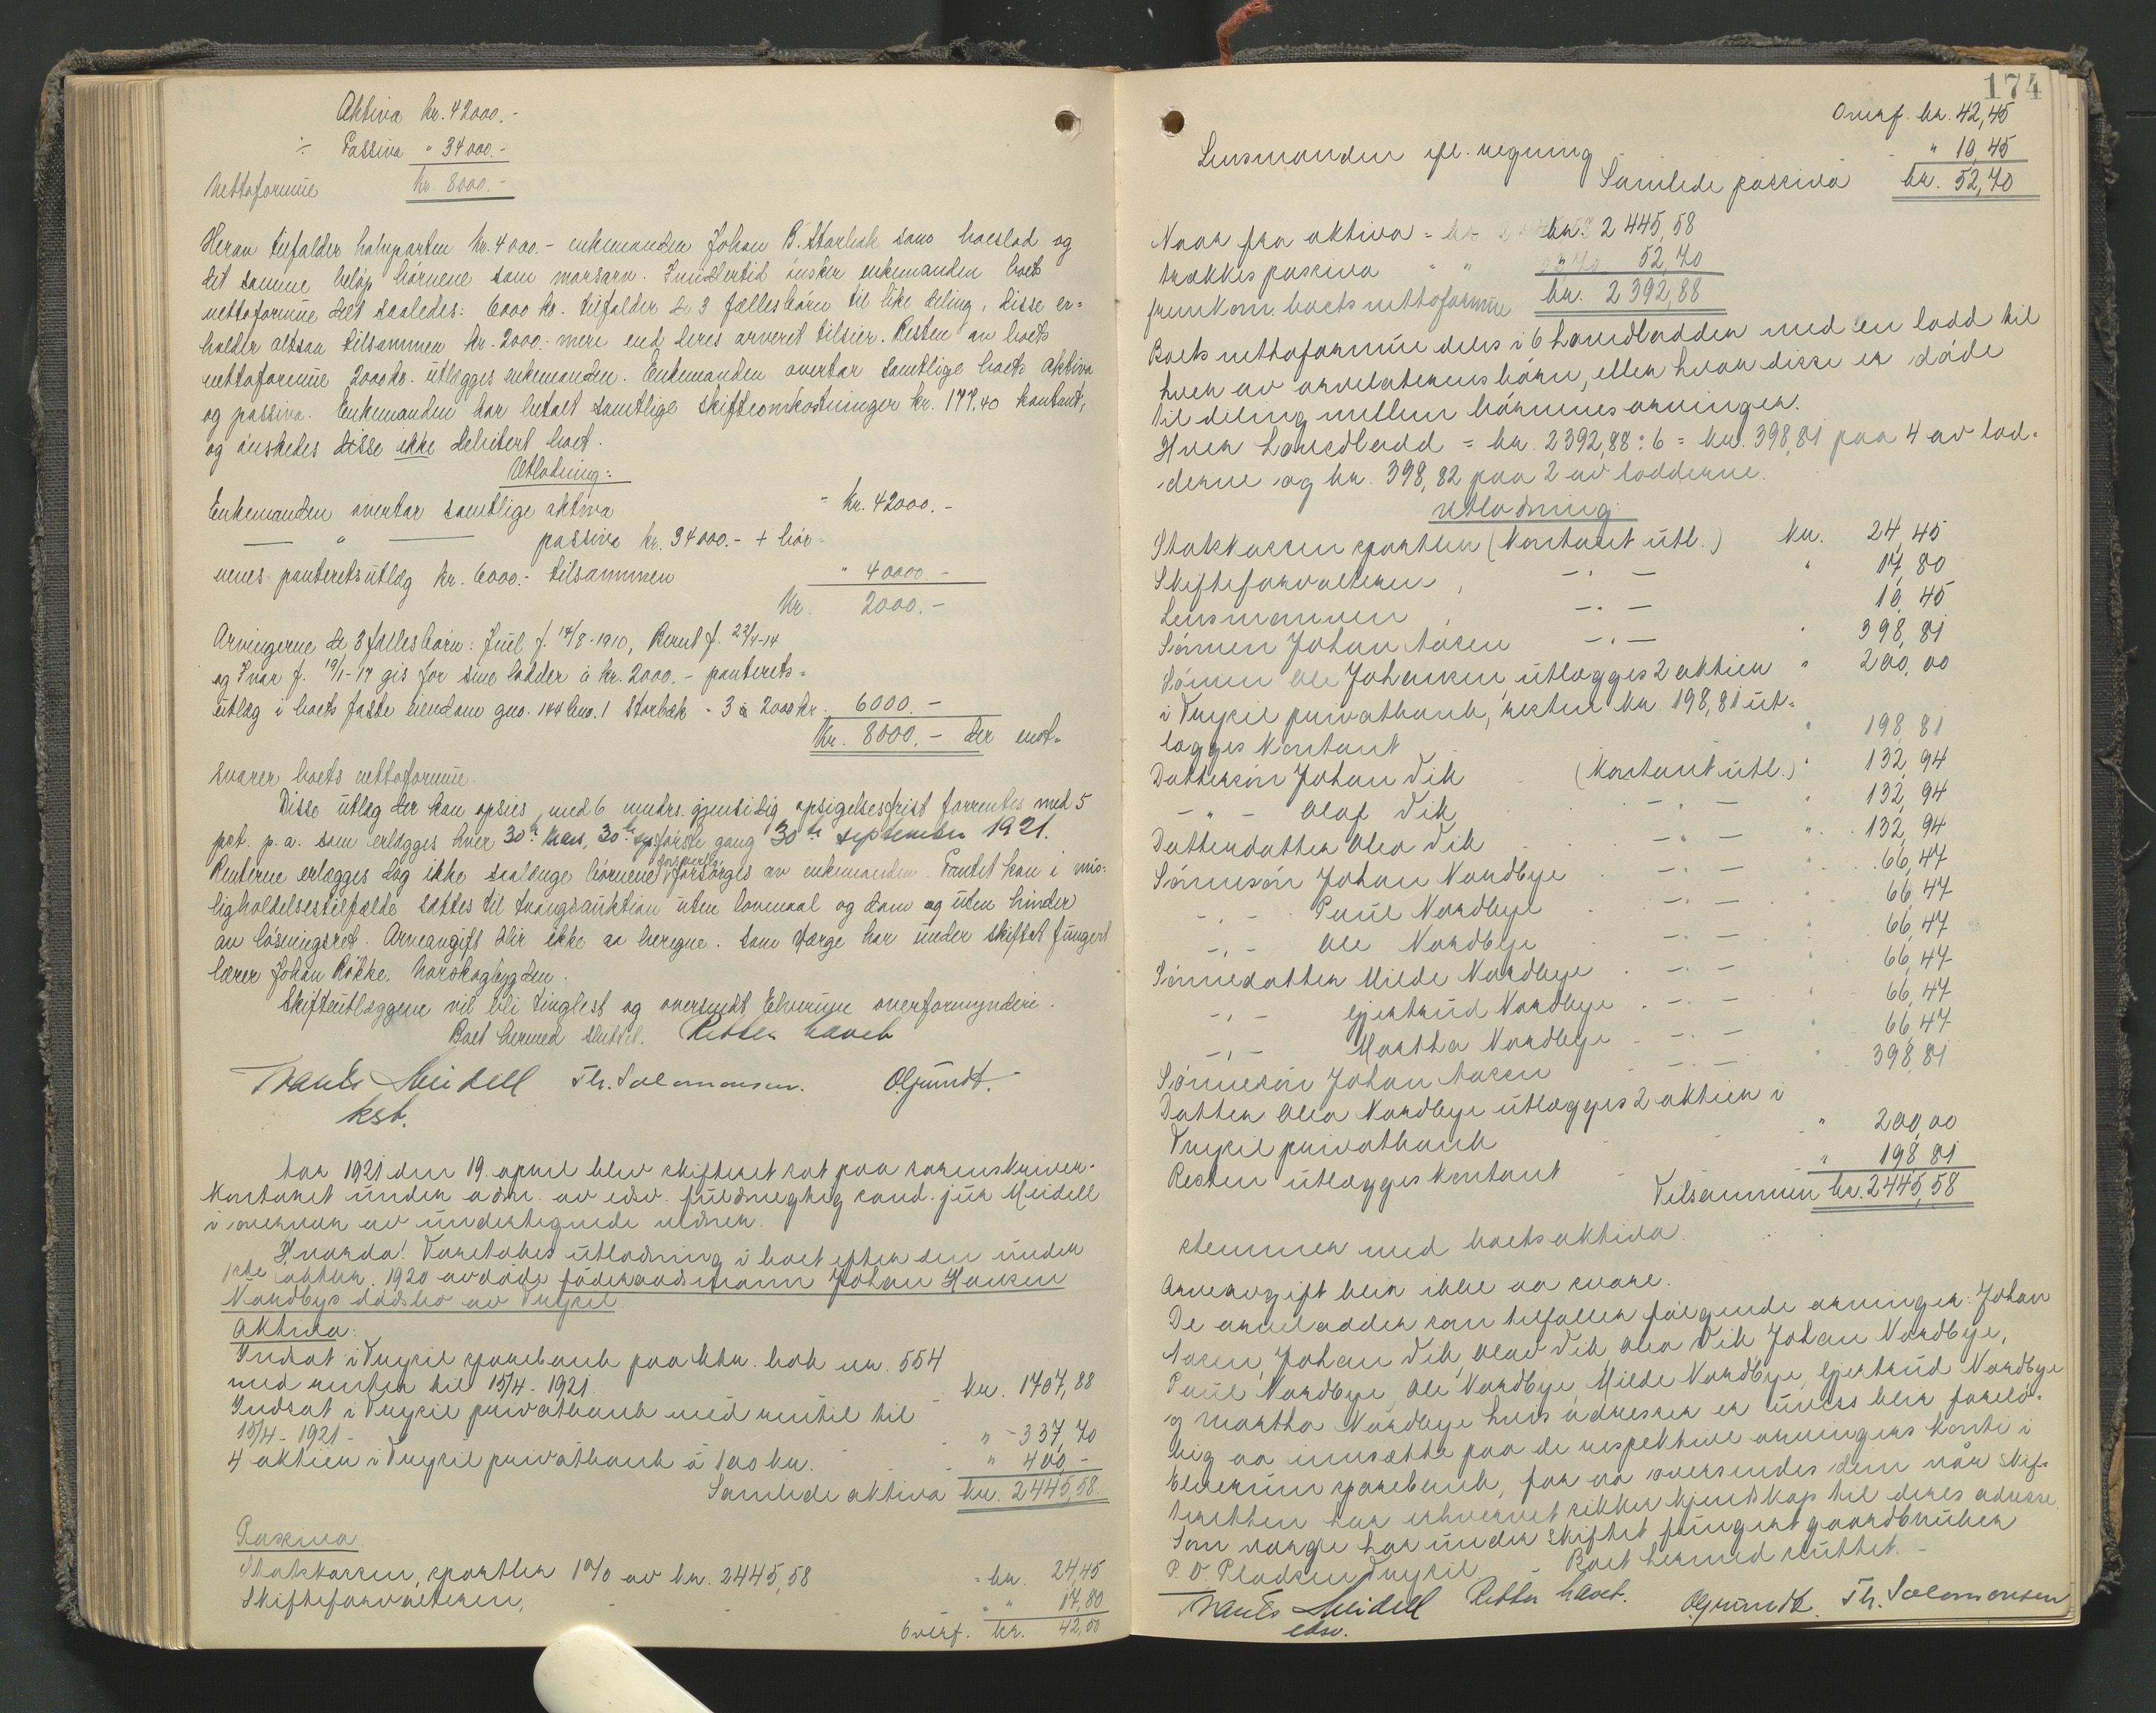 Aktiva kr. 42000.-
÷ Passiva " 34000.-
Nettoformue kr. 8000.-
Herav tilfalder halvparten kr. 4000.- enkemanden Johan B. Storbæk som boeslod og
det samme beløp børnene som morsarv. Imidlertid ønsker enkemanden boets
nettoformue delt saaledes: 6000 kr. tilfalder de 3 fællesbørn til like deling, disse er=
holder altsaa tilsammen kr. 2000.- mere end deres arveret tilsier. Resten av boets
nettoformue 2000 kr. utlægges enkemanden. Enkemanden overtar samtlige boets aktiva
og passiva. Enkemanden har betalt samtlige skifteomkostninger kr. 177.40 kontant,
og ønskedes disse ikke debitert boet.
Utlodning:
Enkemanden overtar samtlige aktiva = kr. 42000.-
— " — passiva kr. 34000.- + bør-
nenes panteretsutlæg kr. 6000.- tilsammen " 40000 -
Kr. 2000.-
Arvingerne de 3 fællesbørn: Juul f. 14/8-1910, Bernt f. 22/4-14
og Ivar f. 19/1-17 gis for sine lodder á kr. 2000.- panterets=
utlæg i boets faste eiendom gno. 144 bno. 1 Storbæk - 3 á 2000 kr. 6000.-
Kr. 8000.- der mot-
svarer boets nettoformue.
Disse utlæg der kan opsies med 6 mndrs. gjensidig opsigelsesfrist forrentes med 5
pct. p.a. som erlægges hver 30te mars, 30te sp første gang 30te september 1921.
Renterne erlægges dog ikke saalænge børnene forsørges av enkemanden. Pantet kan i mis-
ligholdelsestilfælde sættes til tvangsauktion uten lovmaal og dom og uten hinder
av løsningsret. Arveavgift blir ikke aa beregne. Som værge har under skiftet fungert
lærer Johan Røkke, Hornskogbygden.
Skifteutlæggene vil bli tinglest og oversendt Elverum overformynderi.
Boet hermed sluttet. Retten hævet
Trants Meidell Th. Solomonsen. O. Grundt.
kst.
Aar 1921 den 19. april blev skifteret sat paa sorenskriver-
kontoret under adm. av edsv. fuldmægtig cand. jur Meidell
i overvær av undertegnede vidner.
Hvorda! Foretokes utlodning i boet efter den under
1ste oktbr. 1920 avdøde føderaadsmann Johan Hansen
Nordbys dødsbo av Trysil.
Aktiva:
Indsat i Trysil sparebank paa ktr. bok nr. 554
med renter til 15/4-1921. kr. 1707,88
Indsat i Trysil privatbank med renter til
15/4-1921- " - 337,70
4 aktier i Trysil privatbank á 100 kr. " 400 -
Samlede aktiva kr. 2445,58.
Passiva
Statskassen, sportler 1% av kr. 2445,58 = kr. 24,45
Skifteforvalteren, " 17,80
Overf. kr. 42,00
174
Overf. kr. 42,45
Lensmanden ifl. regning " 10,45
Samlede passiva kr. 52,70
Naar fra aktiva = kr. 2 445,58
trækkes passiva " " 52,70
fremkom boets nettoformue kr. 2 392,88
Boets nettoformue deles i 6 hovedlodder med en lodd til
hver av arvelaterens børn, eller hvor disse er døde
til deling mellem børnenes arvinger.
Hver hovedlodd = kr. 2392,88 : 6 = kr. 398,81 paa 4 av lod-
derne og kr. 398,82 paa 2 av lodderne.
Utlodning:
Statskassen sportler (kontant utl.) kr. 24,45
Skifteforvalteren, — " — " 17,80
Lensmannen, — " — 10,45
Sønnen Johan Aasen — " — " 398,81
Sønnen Ole Johansen utlægges 2 aktier " 200,00
i Trysil privatbank, resten kr. 198,81 ut-
lægges kontant " 198,81
Dattersøn Johan Vik (kontant utl.) " 132,94
- " - Olaf Vik — " — " 132,94
Datterdatter Olea Vik — " — " 132,94
Sønnesøn Johan Nordbye — " — 66,47
- " - Paul Nordbye — " — 66,47
- " - Ole Nordbye — " — 66,47
Sønnedatter Milde Nordbye — " — 66,47
- " - Gjertrud Nordbye — " — 66,47
- " - Martha Nordbye — " — 66,47
Sønnesøn Johan Aasen — " — 398,81
Datter Olea Nordbye utlægges 2 aktier i
Trysil privatbank " 200,00
Resten utlægges kontant " 198,81
Tilsammen kr. 2445,58
stemmer med boets aktiva.
Arveavgift blir ikke aa svare.
De arvelodder som tilfaller følgende arvinger: Johan
Aasen, Johan Vik, Olav Vik, Olea Vik, Johan Nordbye,
Paul Nordbye, Ole Nordbye, Milde Nordbye, Gjertrud Nordbye
og Martha Nordbye hvis adresser er uviss blir forelø-
big aa innsætte paa de respektive arvingers konti i
Elverum sparebank, for aa oversendes dem når skif-
teretten har erhvervet sikker kjendskap til deres adresse.
Som værge har under skiftet fungert gaardbruker
P. O. Pladsen Trysil. Boet hermed sluttet. -
Trants Meidell Retten hævet. O. Grundt. Th. Solomonsen
edsv.